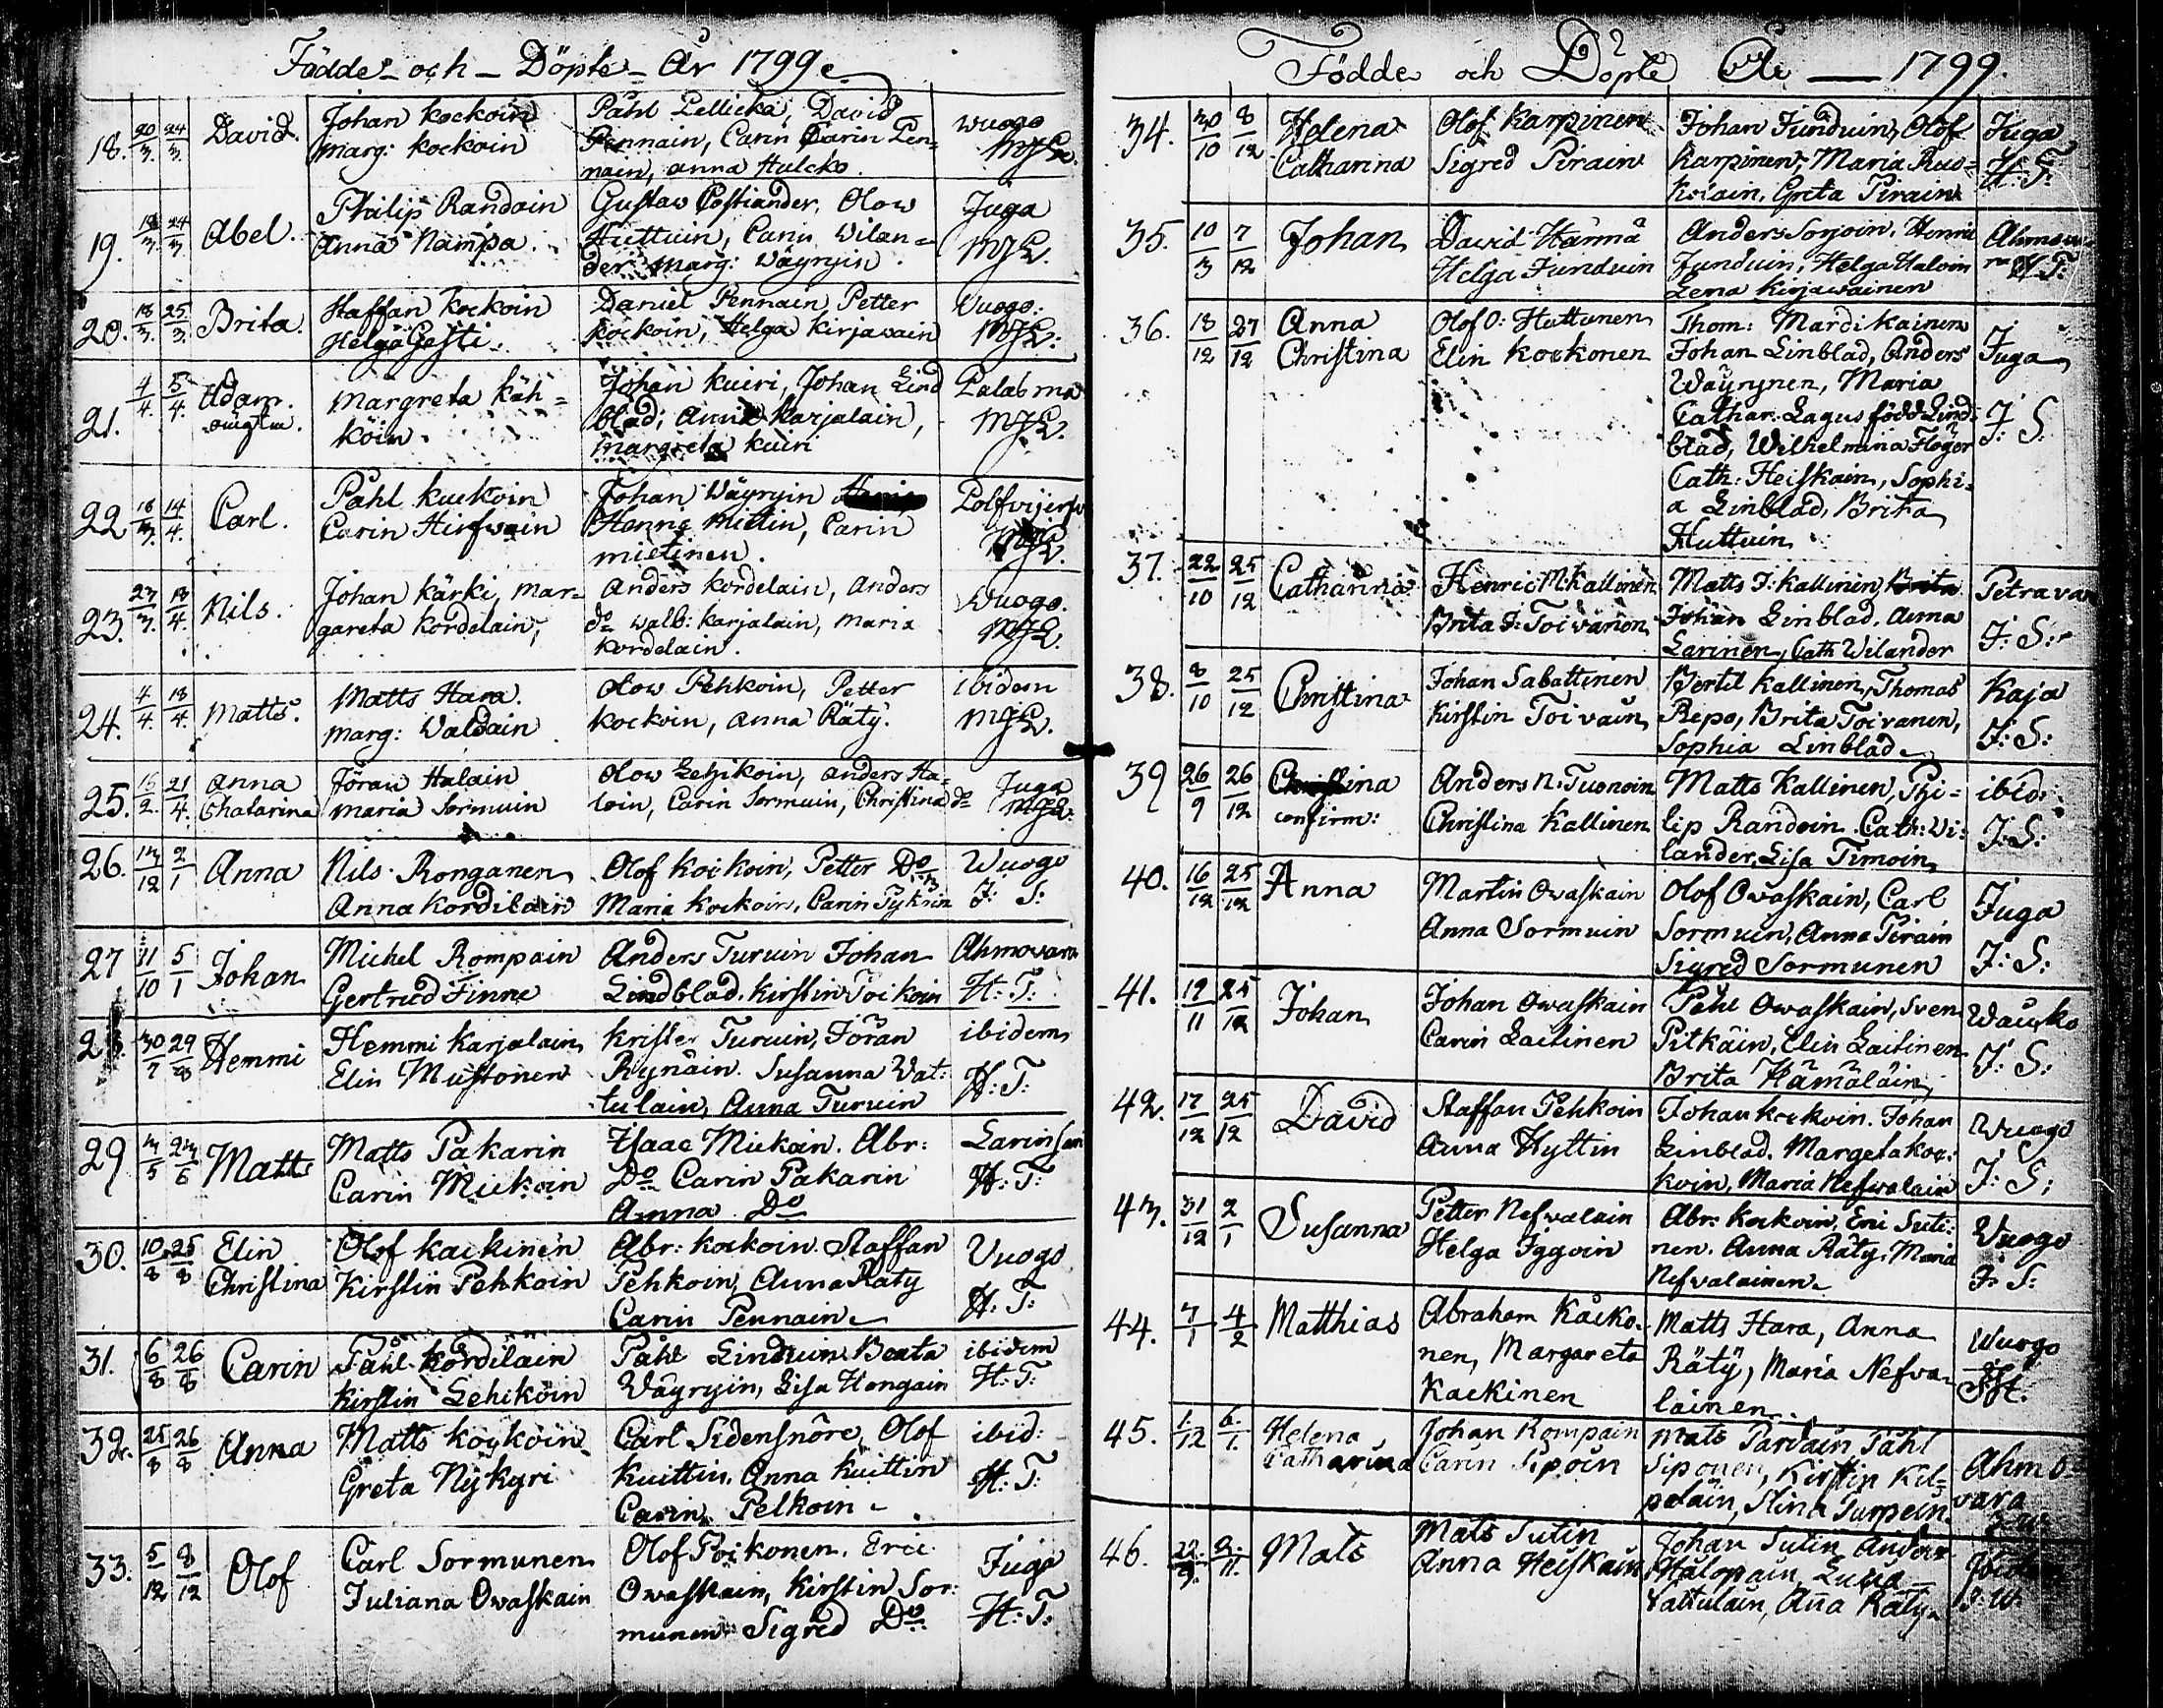 Födde och Döpte År 1799
18. 20/3. 24/3. David. Johan Kockoin Påhl Pellicka, David Wuogo
marg: Kockoin Pennain, Carin Carin Pen=
nain, anna Hulcko.
19. 18/3. 24/3. Abel. Philip Randoin Gustaw Costiander, Olow Juga
Anna Nampa. Huttuin, Carin Wilan=
der marg: Wäyryin.
20. 18/3. 25/3. Brita. Staffan Kockoin Daniel Pennain Petter Vuogo:
Helga Gesti. Kockoin, Helga Kirjawain
21. 4/4. 5/4. Adam. margreta Käh= Johan Kuiri, Johan Lind
oäigtm. köin. blad; Anna Karjalain,
margreta Kuiri
22 18/3. 14/4. Carl. Påhl Kuckoin Johan Wäyryin
Carin Hirfwain Henric Mittin, Carin
mietinen.
23. 27/3. 13/4. Nils. Johan Kärki, mar= Anders Kordelain, Anders Wuogo.
gareta Kordelain, do walb: Karjalain, maria
Kordelain.
24. 4/4. 18/4. Matts. Matts Hara. Olow Pehkoin, Petter ibidem
marg: Valdain Kockoin, anna Räty.
25. 15/2. 21/4. Anna Jöran Halain Olow Lehikoin, anders Ha= Juga
Chatarina maria Sormuin loin, Carin Sormuin, Christina do
26. 13/12 2/1 Anna Nils Ronganen Olof Kockoin, Petter Do Wuogo
Anna Kordilain Maria Kockoin, Carin Tykrin J: S:
27 11/10 5/1 Johan Michel Rompain Anders Turuin Johan Ahmovara
Gertrud Finne Lindblad. Kirstin Toikoin H: T:
28. 30/7 29/8 Hemmi Hemmi Karjalain Krister Turuin, Jöran ibidem
Elin Mustonen Rynäin. Susanna Wat: H: T:
tulain, Anna Turuin
29 3/5 23/6 Matts Matts Pakarin Isaac Mickoin. Abr:
Carin Mickoin Do Carin Pakarin H: T:
Anna Do
30. 10/8 25/8 Elin Olof Kackinen Abr: Kockoin Staffan Vuogo
Christina Kirstin Pehkoin Pehkoin, Anna Räty H: T:
Carin Pennain
31. 6/8 26/8 Carin Påhl Kordilain Påhl Linduin Beata ibidem
Kirstin Lehiköin Wäyryin, Lisa Hongain H: T:
32. 25/8 26/8 Anna Matts Kockoin Carl Sidensnöre, Olof ibid:
Greta Nykyri Kuittin, Anna Kuittin H: T:
Carin Pelkoin
33. 5/12 8/12 Olof Carl Sormunen Olof Poikonen, Eric Juga
Juliana Owaskain Owaskain, Kirstin Sor: H: T:
munen Sigred Do
Födde och Döpte År 1799.
34. 30/10 8/12 Helena Olof Karpinen Johan Junduin, Olof Juga
Catharina Sigred Pirain Karpinen, Maria Ruo= H: T:
Koiain, Greta Pirain
35. 10/3 7/12 Johan David Hannå Anders Sorjoin, Henric
Helga Junduin Junduin, Helga Haloin H: T:
Lena Kirjawainen
36. 13/12 27/12 Anna Olof O: Huttunen Thom: Mardikainen Juga
Christina Elin Kockonen Johan Linblad, Anders J: S:
Wäyrynen, Maria
Cathar: Lagus född Lind
blad, Wilhelmina Höger
Cath: Heiskain, Sophi=
a Linblad, Brita
Huttuin
37. 22/10 25/12 Catharina Henric M: Kallinen Matts J: Kallinen, Brita Petravar
Brita J: Toivanen Johan Linblad, Anna J: S:
Larinen, Cath Wilander
38. 8/10 25/12 Christina Johan Sabattinen Bertil Kallinen, Thomas Kaja
Kirstin Toivain Repo, Brita Toivanen, J: S:
Sophia Linblad
39 26/9 26/12 Christina Anders N: Tuonoin Matts Kallinen, Phi= ibid:
confirm: Christina Kallinen lip Randoin. Cath: Wi: J: S:
lander, Lisa Timoin
40. 16/12 25/12 Anna Martin Owaskain Olof Owaskain, Carl Juga
Anna Sormuin Sormuin, Anna Pirain J: S:
Sigred Sormunen
41. 19/11 25/12 Johan Johan Owaskain Pehl Owaskain, Sven
Carin Laitinen Pitkäin, Elin Laitinen J: S:
Brita Hämäläin
42. 17/12 25/12 David Staffan Pehkoin Johan Kockoin. Johan Wuogo
Anna Hyttin Linblad. Margeta Koc: J: S:
koin, Maria Nefwalain
43. 31/12 2/1 Susanna Petter Nefvalain Abr: Kockoin, Eric Suti: Wuogo
Helga Iggoin nen. Anna Räty. Maria J: S:
Nefvalainen
44. 7/1 4/2 Matthias Abraham Kåcko= Matts Hara, Anna Wuogo
nen, Margareta Rätÿ, Maria Nefva=
Kackinen lainen.
45. 1/12 6/1. Helena Johan Rompain Mats Pardain Påhl Ahmo
Catharina Carin Sipoin Siponen, Kirstin Kil= vara
peläin, Stina Turpein
46. Mats Mats Sutin Johan Sutin Anders
Anna Heiskain Halopain,
Vattulain, Ana Räty.